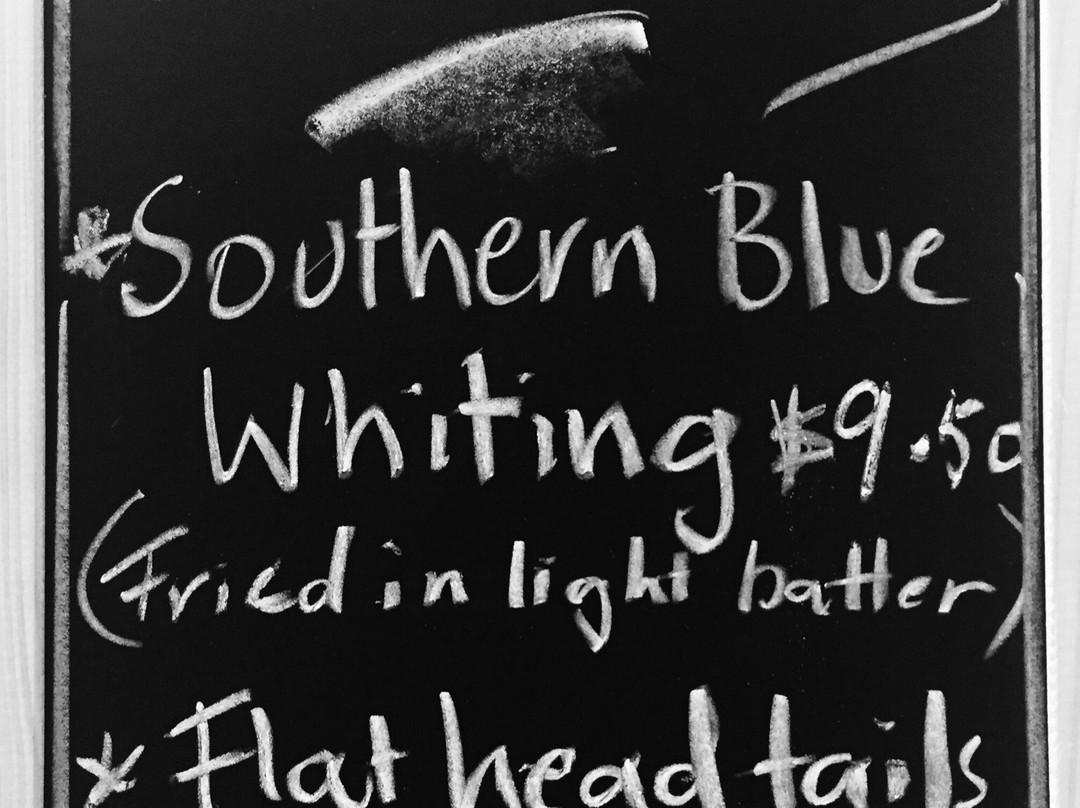 *Southern Blue
Whiting $9.50
(Fried in light batter)
* Flat head tails